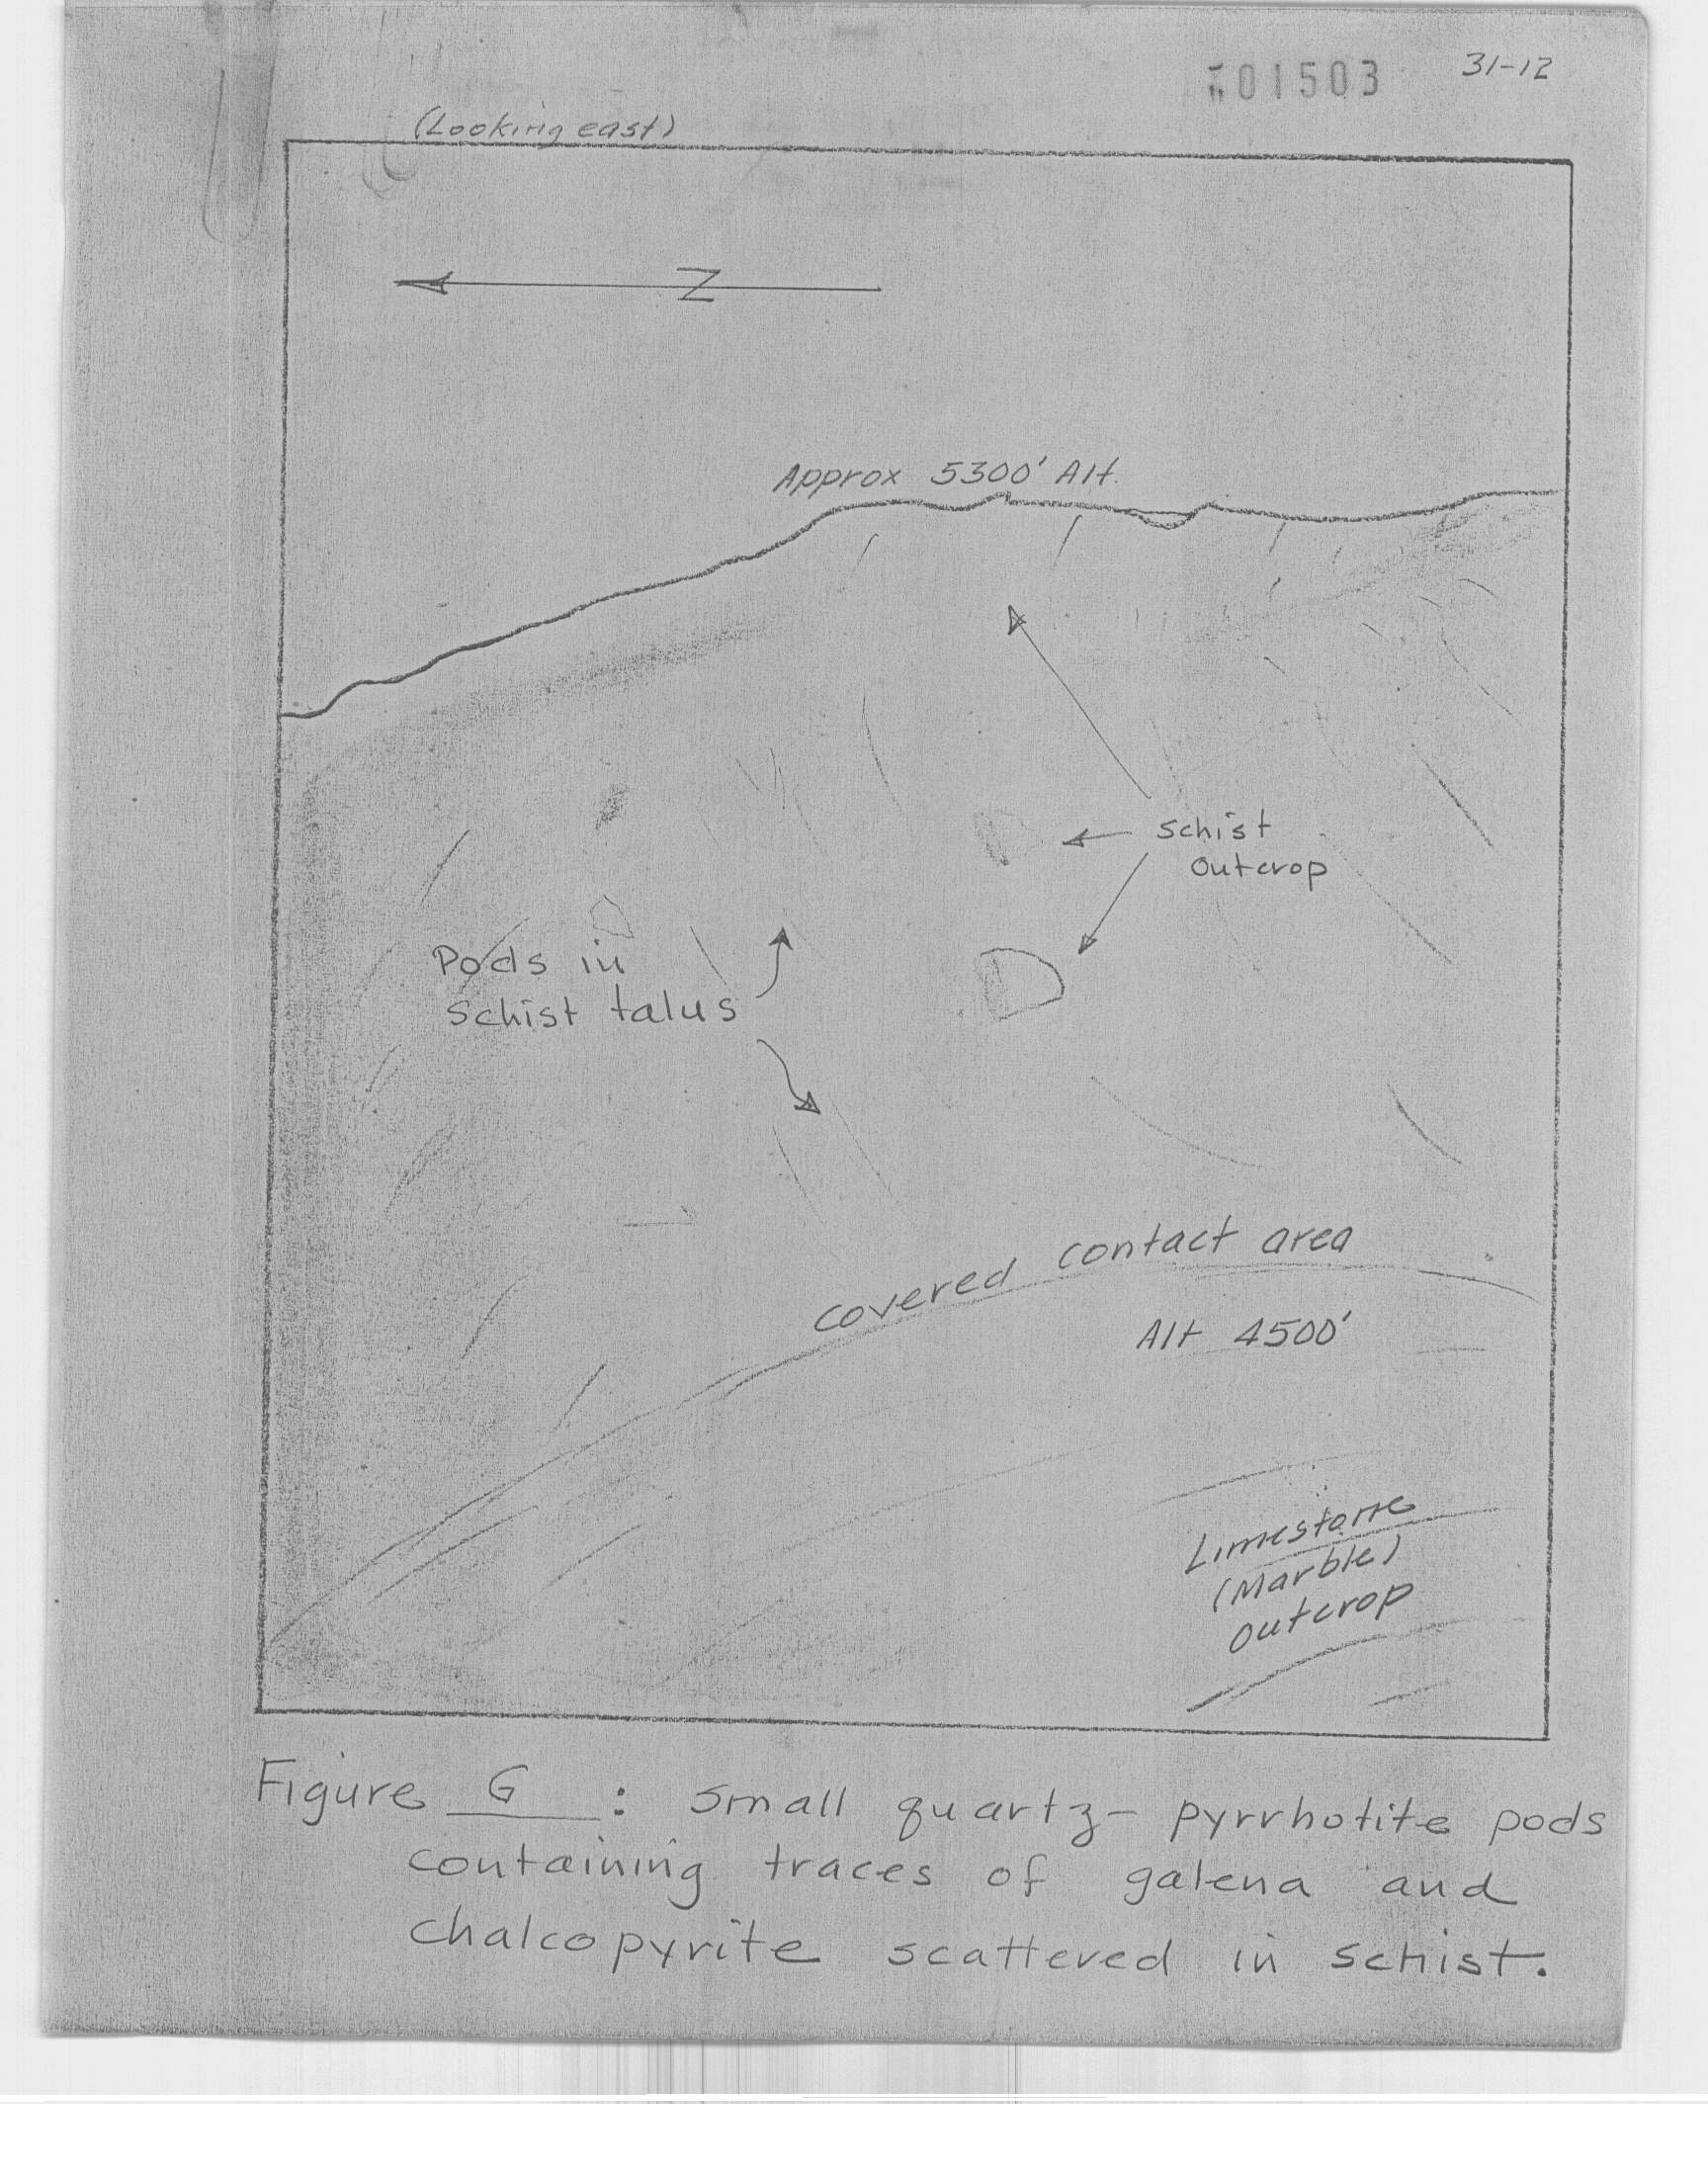 01503
31-12
(Looking east)
N
Approx 5300' Alt.
schist
outcrop
Pods in
schist talus
covered contact area
Alt 4500'
Limestone
(Marble)
outcrop
Figure G : small quartz- pyrrhotite pods
containing traces of galena and
chalcopyrite scattered in schist.